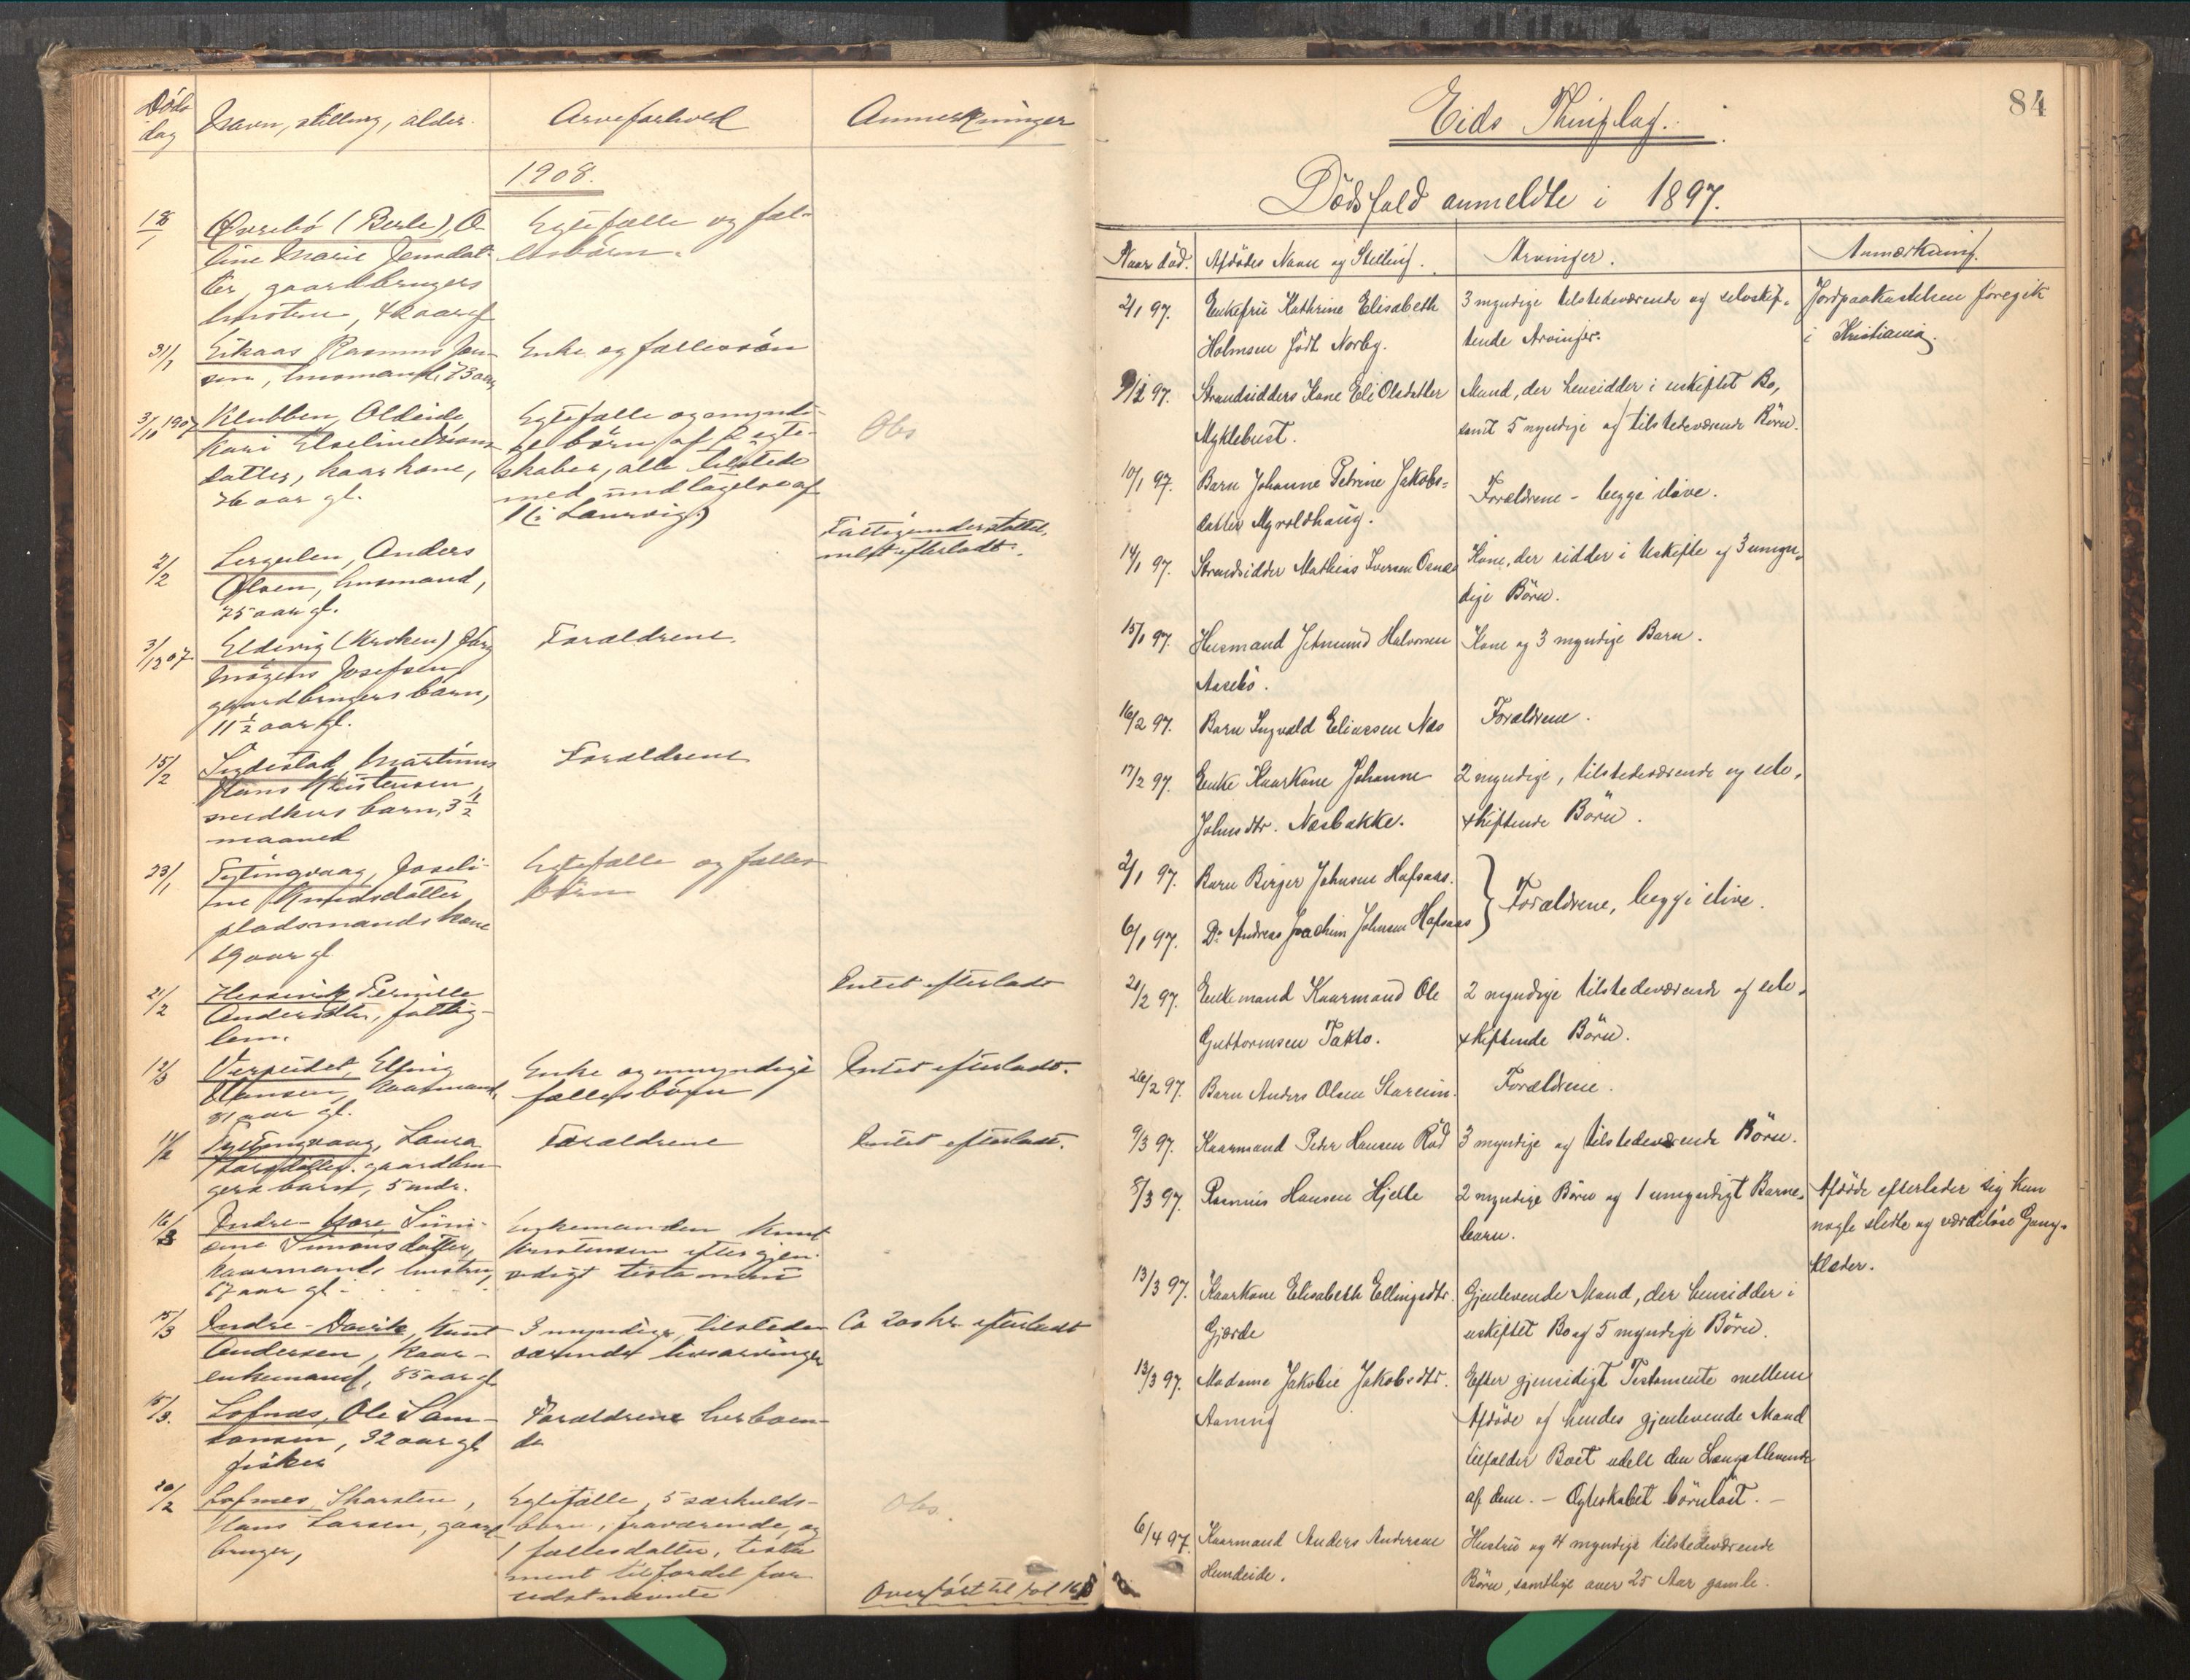 Døds
dag
Navn, stilling, alder.
Arveforhold
Anmerkninger
1908.
18/1
Øvrebø (Berle), O-
line Marie Jensdat-
ter, gaardbrugers
hustru, 42 aar gl
Egtefælle og fæl-
lesbörn.
31/1
Eikaas Rasmus Jen-
sen, husmand, 73 aar
Enke og fællessön
3/10 1907
Klubben, Oldeide,
Kari Elseline
datter, kaarkone,
76 aar gl.
Egtefælle og myndi-
ge börn af 2 egte-
skaber, alle tilstede
med undtagelse af
1 (i Laurvig)
Obs
2/2
Anders
Olsen, husmand,
75 aar gl.
Fattigunderstøttet,
intet efterladt.
3/12 07
Eldevig (Kroken)
Mogens Josefsen
gaardbrugers barn,
11 1/2 aar gl.
Forældrene.
15/2
Sigdestad, Martinus
Hans Kristensen,
smedkurs barn, 3 1/2
maaned
Forældrene
23/1
Tytingvaag, Joseli-
ne Knudsdatter
pladsmands kone
19 aar gl
Egtefælle og fælles
börn
21/2
Hessevik Pernille
Andersdtr, fattig-
lem.
Intet efterladt
12/3
Verpeidet, Elling
Hansen, kaarmand,
81 aar gl.
Enke og myndige
fællesbörn
Intet efterladt.
Tytingvaag, Laura
Larsdatter. gaardbru-
gers barn, 5 mdr.
Forældrene
Intet efterladt.
16/3
Indre-Hore, Simi-
ane Simonsdatter,
kaarmands hustru,
67 aar gl.
Enkemanden Knut
Kristensen efter gjen-
sidigt testament
15/3
Indre-Davik, Knut
Andersen, kaar-
enkemand, 85 aar gl
3 myndige, tilstede-
værende livsarvinger
Ca 200 kr. efterladt
15/3.
Lofnæs, Ole Sam-
sonsen, 32 aar gl
fisker
Forældrene herboen-
de
20/2
Lofnæs, Thorsten,
Hans Larsen, gaard-
bruger,
Egtefælle, 5 særkulds-
barn, fraværende, og
1 fællesdatter, testa
ment tilfordel for
sidstnævnte
Obs.
Overført til fol 168
84
Eids Thinglag.
Dödsfald anmeldte i 1897.
Naar död.
Afdödes Navn og Stilling.
Arvinger.
Anmærkning.
2/1 97.
Enkefru Kathrine Elisabeth
Holmsen födt Norby.
3 myndige tilstedeværende og selvskif-
tende Arvinger.
Jordpaakastelsen foregik
i Kristiania.
9/1 97.
Strandsidders Kone Eli Olsdatter
Myklebust.
Mand, der hensidder i uskiftet Bo,
samt 5 myndige og tilstedeværende Börn.
10/1 97.
Barn Johanne Petrine Jakobs-
datter Myroldhaug.
Forældrene - begge ilive.
14/1 97.
Strandsidder Mathias Iversen Osnæs
Kone, der sidder i Uskifte og 3 umyn-
dige Börn.
15/1 97.
Husmand Jetmund Halvorsen
Aasebö.
Kone og 3 myndige Barn.
16/2 97.
Barn Ingvald Eliassen Næs
Forældrene.
17/2 97.
Enke Kaarkone Johanne
Johnsdtr. Næsbakke.
2 myndige, tilstedeværende og selv-
skiftende Börn.
2/1 97.
Barn Birger Johnsen Hafsaas.
6/1 97.
Do Andreas Joachim Johnsen Hafsaas
Forældrene, begge ilive.
21/2 97.
Enkemand Kaarmand Ole
Guttormsen Taklo.
2 myndige tilstedeværende og selv-
skiftende Börn.
26/2 97.
Barn Anders Olsen Stareim.
Forældrene.
9/3 97.
Kaarmand Peder Hansen Röd
3 myndige og tilstedeværende Börn.
8/3 97.
Rasmus Hansen Hjelle
2 myndige Börn og 1 umyndigt Barne-
barn.
Afdöde efterlader sig kun
nogle slidte og værdilöse Gang-
klæder.
13/3 97.
Kaarkone Elisabeth Ellingsdtr.
Gjærde
Gjenlevende Mand, der hensidder i
uskiftet Bo og 5 myndige Börn.
13/3 97.
Madame Jakobie Jakobsdtr.
Aaning
Efter gjensidigt Testamente mellem
Afdöde og hendes gjenlevende Mand
tilfalder Boet udelt den Længstlevende
af dem. - Ægteskabet börnlöst. -
6/4 97.
Kaarmand Anders Andersen
Hundeide.
Hustru og 4 myndige tilstedeværende
Börn, samtlige over 25 Aar gamle.